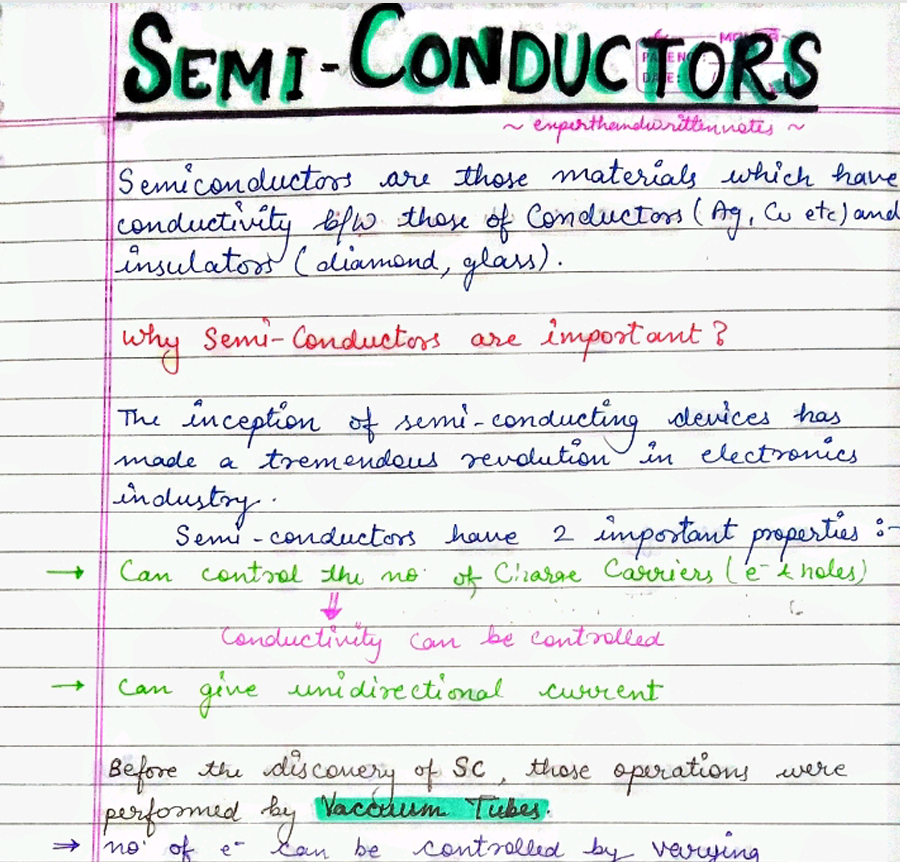 SEMI-CONDUCTORS
~ experthandwrittennotes ~
Semiconductors are those materials which have
conductivity b/w those of Conductors (Ag, Cu etc) and
insulators (diamond, glass).
Why Semi-Conductors are important?
The inception of semi-conducting devices has
made a tremendous revolution in electronics
industry.
Semi-conductors have 2 important properties :-
→ Can control the no. of Charge Carriers (e⁻ & holes)
⇓
Conductivity can be controlled
→ Can give unidirectional current
Before the discovery of SC, those operations were
performed by Vacouum Tubes.
⇒ no. of e⁻ can be controlled by varying